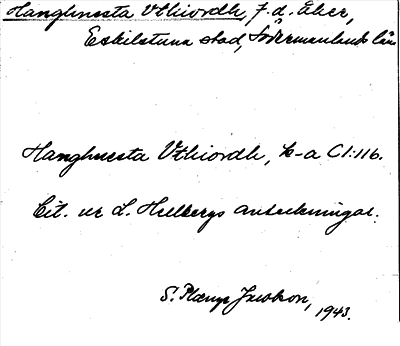 Hanghnesta Vthiordh, f. d. Eker,
Eskilstuna stad, Södermanlands län
Hanghnesta Vthiordh, k-a C1:116.
Cit. ur L. Hellbergs anteckningar.
S. Jacobson,
1943.